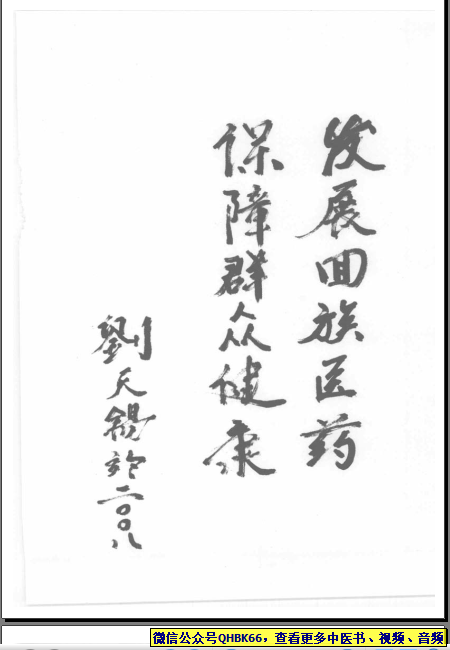 发展回族医药
保障群众健康
劉天锡於二〇〇八
微信公众号QHBK66，查看更多中医书、视频、音频